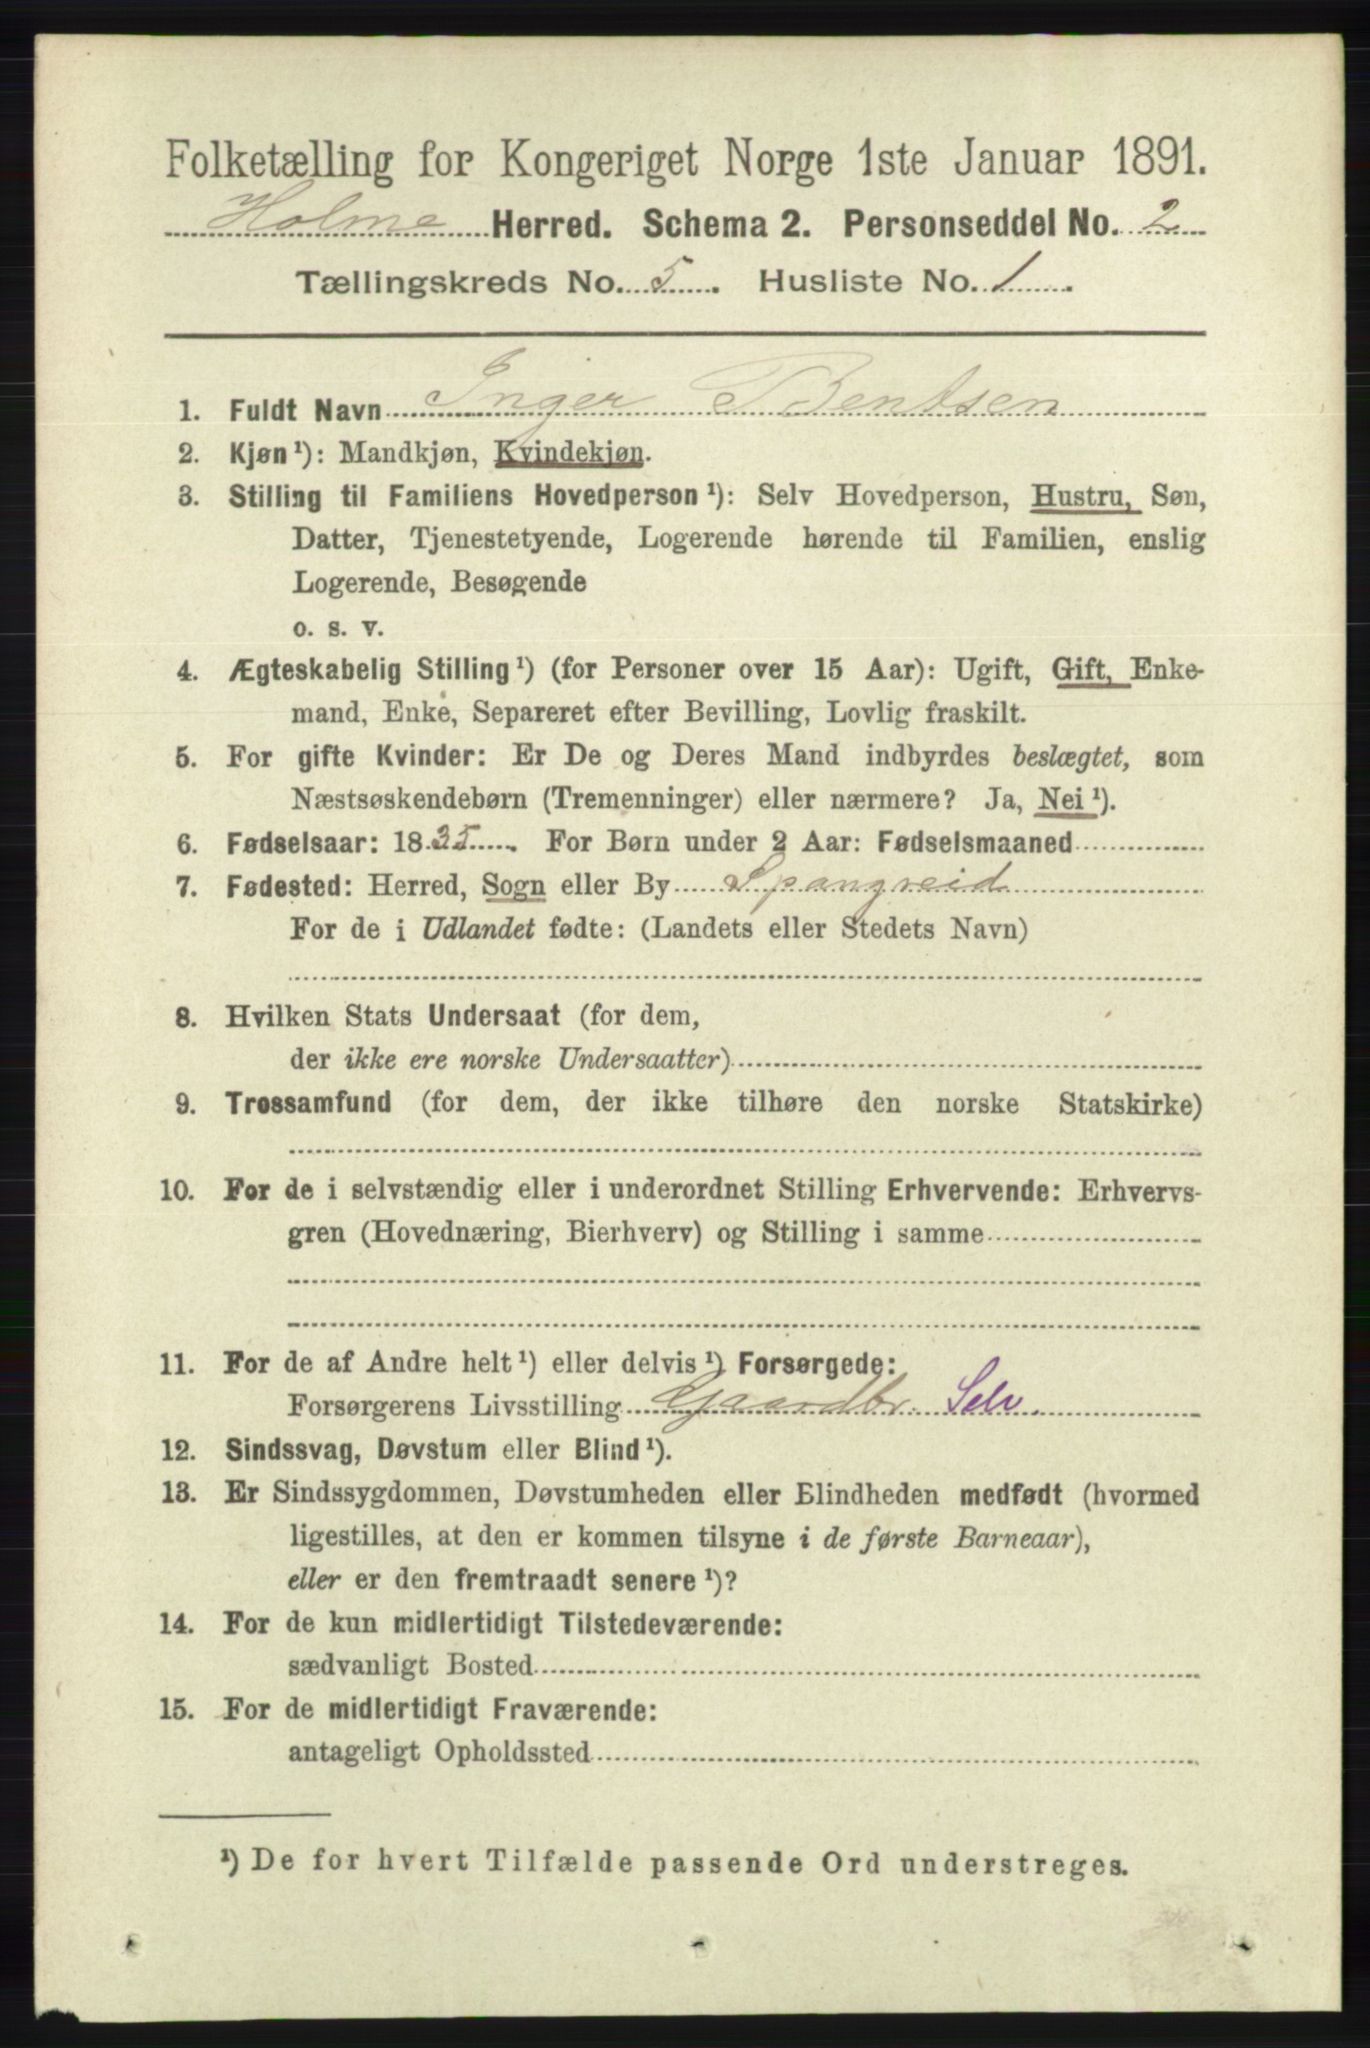 Folketælling for Kongeriget Norge 1ste Januar 1891.
Holme Herred. Schema 2. Personseddel No. 2
Tællingskreds No. 5. Husliste No. 1.
1. Fuldt Navn Inger Bentsen
2. Kjøn ¹): Mandkjøn, Kvindekjøn.
3. Stilling til Familiens Hovedperson ¹): Selv Hovedperson, Hustru, Søn,
Datter, Tjenestetyende, Logerende hørende til Familien, enslig
Logerende, Besøgende
o. s. v.
4. Ægteskabelig Stilling ¹) (for Personer over 15 Aar): Ugift, Gift, Enke-
mand, Enke, Separeret efter Bevilling, Lovlig fraskilt.
5. For gifte Kvinder: Er De og Deres Mand indbyrdes beslægtet, som
Næstsøskendebørn (Tremenninger) eller nærmere? Ja, Nei ¹).
6. Fødselsaar: 1835. For Børn under 2 Aar: Fødselsmaaned
7. Fødested: Herred, Sogn eller By Spangreid
For de i Udlandet fødte: (Landets eller Stedets Navn)
8. Hvilken Stats Undersaat (for dem,
der ikke ere norske Undersaatter)
9. Trossamfund (for dem, der ikke tilhøre den norske Statskirke)
10. For de i selvstændig eller i underordnet Stilling Erhvervende: Erhvervs-
gren (Hovednæring, Bierhverv) og Stilling i samme
11. For de af Andre helt ¹) eller delvis ¹) Forsørgede:
Forsørgerens Livsstilling Gaardbr. Selv.
12. Sindssvag, Døvstum eller Blind ¹).
13. Er Sindssygdommen, Døvstumheden eller Blindheden medfødt (hvormed
ligestilles, at den er kommen tilsyne i de første Barneaar),
eller er den fremtraadt senere ¹)?
14. For de kun midlertidigt Tilstedeværende:
sædvanligt Bosted
15. For de midlertidigt Fraværende:
antageligt Opholdssted
¹) De for hvert Tilfælde passende Ord understreges.